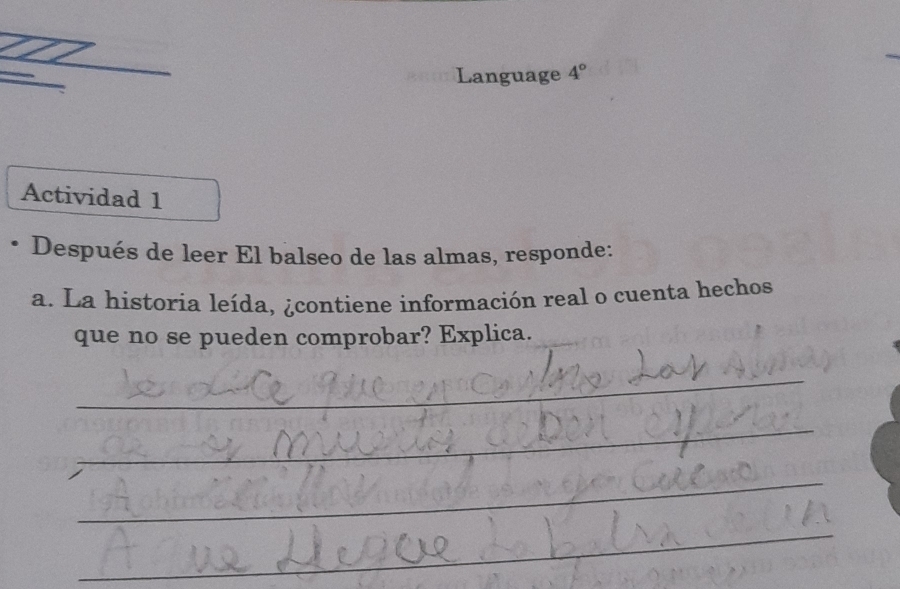 Language 4°
Actividad 1
• Después de leer El balseo de las almas, responde:
a. La historia leída, ¿contiene información real o cuenta hechos
que no se pueden comprobar? Explica.
se dice que en Las almas
de los muertos deben esperar
A
A que llegue La balsa de un